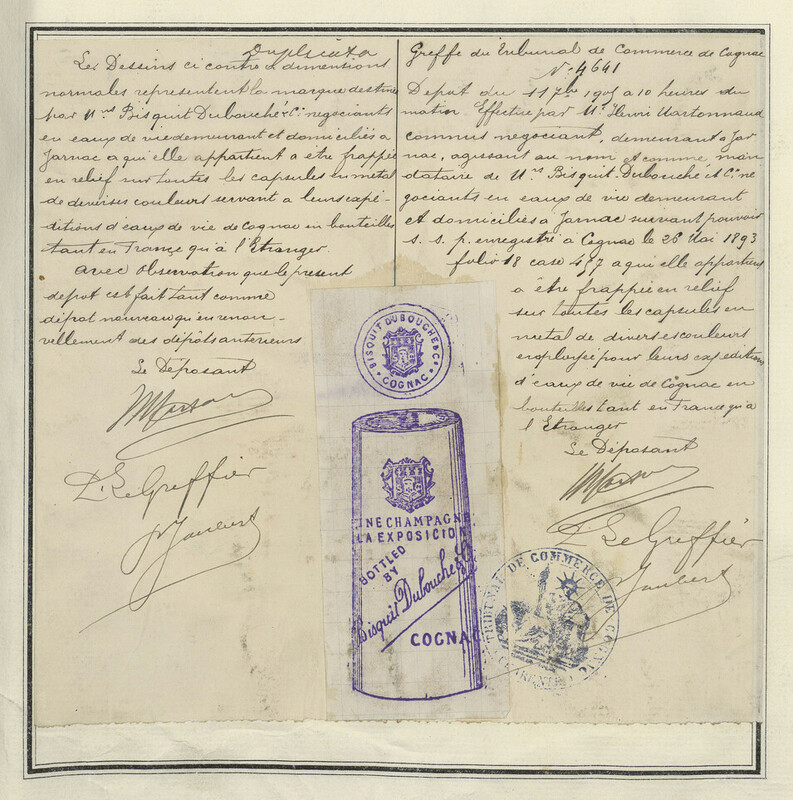 Duplicata
Les Dessins ci contre de dimentions
normales representent la marque destinée
par Mrs Bisquit Dubouché & Cie negociants
en eaux de vie demeurant et domiciliés à
Jarnac a qu'elle appartient a être frappée
en relief sur toutes les capsules en métal
de diverses couleurs servant a leurs expé-
ditions d'eaux de vie de Cognac en bouteilles
tant en France qu'à l'Etranger.
avec observation que le present
depot est fait tant comme
dépot nouveau qu'en renou-
vellement des dépôts anterieurs
Le Déposant
P. Le Greffier
Jaubert
Greffe du Tribunal de Commerce de Cognac
No. 4641
Depot du 11 7bre 1905 a 10 heures du
matin Effectué par Mr. Henri Martonnaud
commis negociant, demeurant a Jar
nac, agissant au nom et comme man
dataire de Mrs Bisquit Dubouché et Cie ne
gociants en eaux de vie demeurant
et domiciliés a Jarnac suivant pouvoir
s. s. p. enregistré a Cognac le 26 Mai 1893
folio 18 case 457 a qui elle appartient
a être frappée en relief
sur toutes les capsules en
metal de diverses couleurs
employée pour leurs expeditions
d'eaux de vie de Cognac en
bouteilles tant en France qu'a
l'Etranger
Le Déposant
P. Le Greffier
Jaubert
BISQUIT DUBOUCHÉ & Co
COGNAC
INE CHAMPAGNE
LA EXPOSICION
BOTTLED
BY
Bisquit Dubouché & Co
COGNAC
TRIBUNAL DE COMMERCE DE COGNAC
CHARENTE